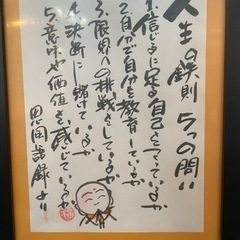 人生の鉄則 5つの問い
1.信じるに足る自己をつくっているか
2.自分で自分を教育しているか
3.限界への挑戦をしているか
4.決断に賭けているか
5.意味や価値を感じているか
思同語録より